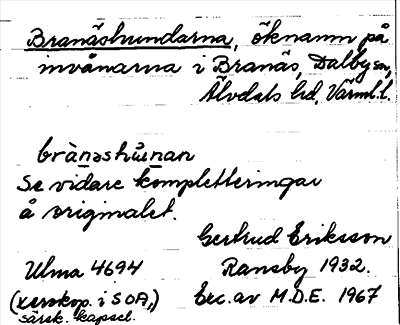 Branäshundarna, öknamn på
invånarna i Branäs, Dalby sn,
Älvdals hd, Värml.l.
brànəshu̇nan
Se vidare kompletteringar
å originalet.
Gertrud Eriksson
Ulma 4694 Ransby 1932.
(xerokop. i SOA,) Exc. av M.D.E. 1967
särsk. kapsel.